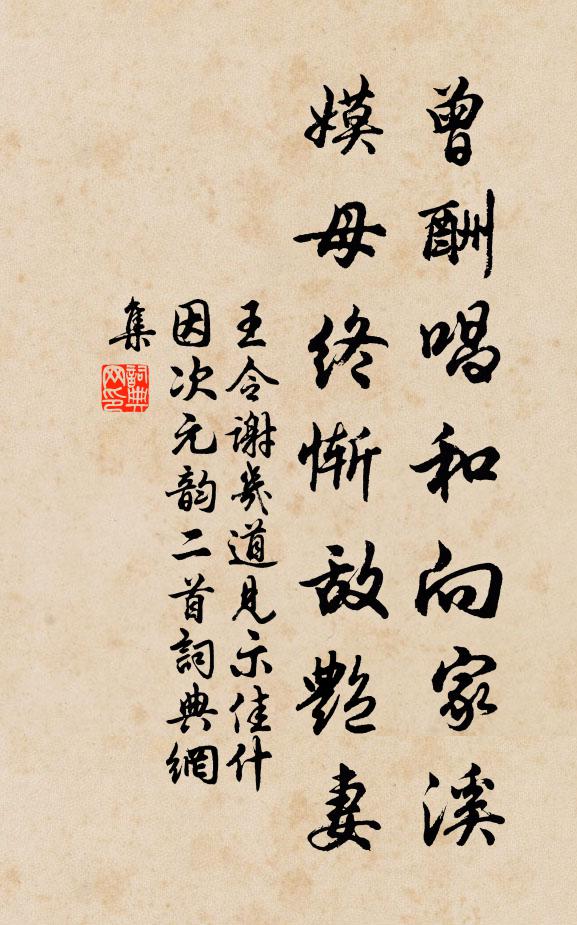 曾酬唱和向家溪
嫫母终惭敌艳妻
王令谢几道见示佳什
因次元韵二首詞典網
集
詞典
网印